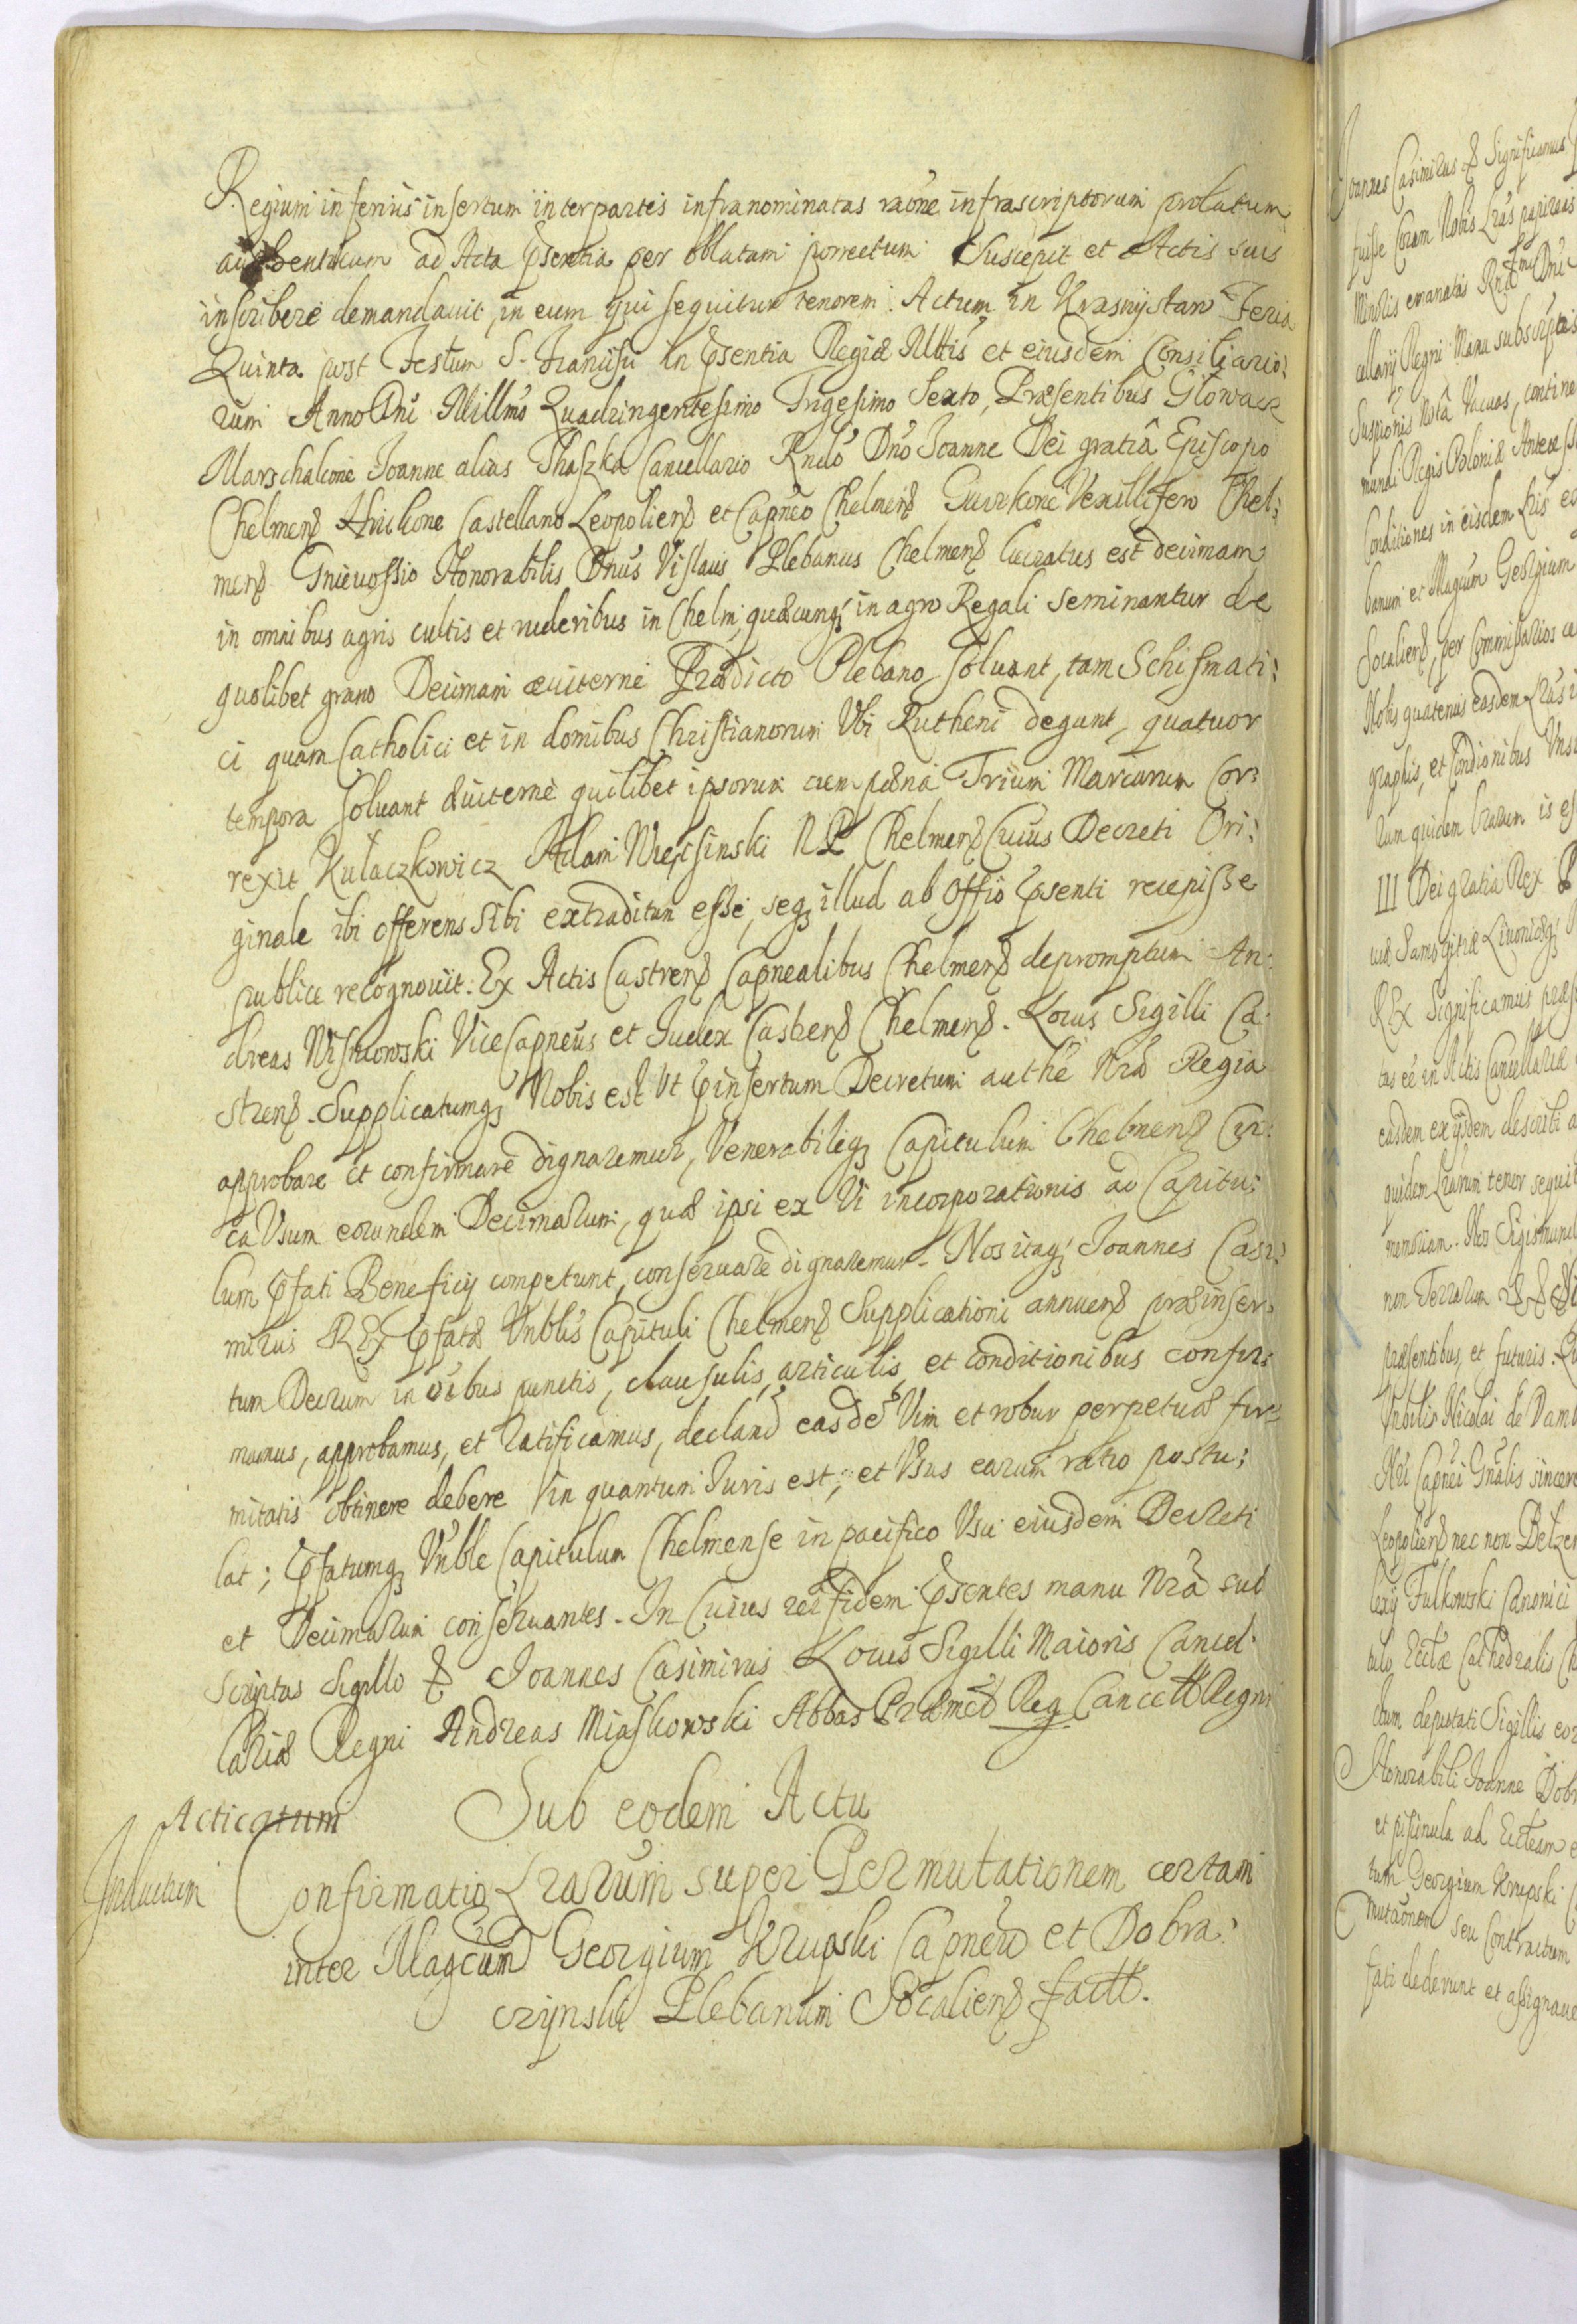 Regium inferius insertum inter partes infranominatas raone infrascriptorum prolatum
authenticum ad Acta psentia per oblatam porrectum Suscepit et Actis suis
inscribere demandauit, in eum qui sequitur tenorem. Actum in Krasnystaw Feria
Quinta post Festum S. Francisci in psentia Regiæ Mttis et eiusdem Consiliario:
rum Anno Dni Millmo Quadringentesimo Trigesimo Sexto, Præsentibus Głowacz
Marschalcone Joanne alias Thaszka Cancellario Rndo Dno Joanne Dei gratiâ Episcopo
Chelmens Hrickone Castellano Leopoliens et Capneo Chelmens Vexillifero Chel:
mens Gnieuossio Honorabilis Dnus Vislaus Plebanus Chelmens lucratus est decimam
in omnibus agris cultis et ruderibus in Chelm, quæcunq; in agro Regali seminantur de
quolibet grano Decimam æuiterne Prædicto Plebano soluant, tam Schismati:
ci quam Catholici et in domibus Christianorum Vbi Rutheni degunt, quatuor
tempora soluant æuiternè quilibet ipsorum cum pœna Trium Marcarum Cor:
rexit Kułaczkowicz Adam NP Chelmens Cuius Decreti Ori:
ginale ibi offerens sibi extraditum esse, seq; illud ab Offio psenti recepisse
publice recognouit. Ex Actis Castrens Capnealibus Chelmens depromptum An:
dreas Vice Capneus et Iudex Castrens Chelmens. Locus Sigilli Ca:
strens. Supplicatumq; Nobis est Vt pinsertum Decretum authe Nra Regia
approbare et confirmare dignaremur, Venerabileq; Capitulum Chelmens Cir:
ca Vsum eorundem Decimarum, quæ ipsi ex Vi incorporationis ad Capitu:
lum pfati Beneficij competunt, conseruare dignaremur. Nos itaq; Joannes Casi:
mirus REX pfatæ Vnblis Capituli Chelmens Supplicationi annuens præinser:
tum Decrum in oibus punctis, clausulis, articulis, et conditionibus confir:
mamus, approbamus, et ratificamus, decland easdē Vim et robur perpetuæ fir:
mitatis obtinere debere in quantum Iuris est, et Vsus earum ratio postu:
lat; pfatumq; Vnble Capitulum Chelmense in pacifico Vsu eiusdem Decreti
et Decimarum conseruantes. In Cuius rei fidem psentes manu Nrâ sub
scriptas Sigillo & Joannes Casimirus Locus Sigilli Maioris Cancel:
lariæ Regni Andreas Miaskowski Abbas Reg Cancell Regni
Acticatum
Sub eodem Actu
Inductum
Confirmatio Lrarum super Permutationem certam
inter Magcum Georgium Krupski Capneu et Dobra:
czynski Plebanum Socaliens fact.
Joannes Casimirus & Significamus
fuisse Coram Nobis Lras papireas
Minoris emanatas Rndmi Dni
cellarij Regni Manu subscriptas
Suspionis Nota Vacuas, contine
mundi Regis Poloniæ Antece
Conditiones in eisdem Lris
banum et Magcum Georgium
Socaliens, per Commissarios
Nobis quatenus easdem Lras
graphis, et Condionibus
rum quidem lrarum is
III Dei gratia Rex
uiæ Samogitiæ Liuoniæq;
REX Significamus præse
tas eē in Actis Cancellariæ
easdem ex ijsdem describi
quidem Lrarum tenor sequit
memoriam. Nos Sigismund
non Terrarum & &
præsentibus, et futuris.
Vnbilis Nicolai de Damb
Nri Capnei Gnalis sincere
Leopoliens nec non Belzen
lexij Fulkowski Canonici
tulo Ecclæ Cathedralis
dum deputati Sigillis eor
Honorabili Joanne Dobr
et piscinula ad Eccleam
tum Georgium Krupski
mutaonem seu Contractum
fati dederunt et assignaue